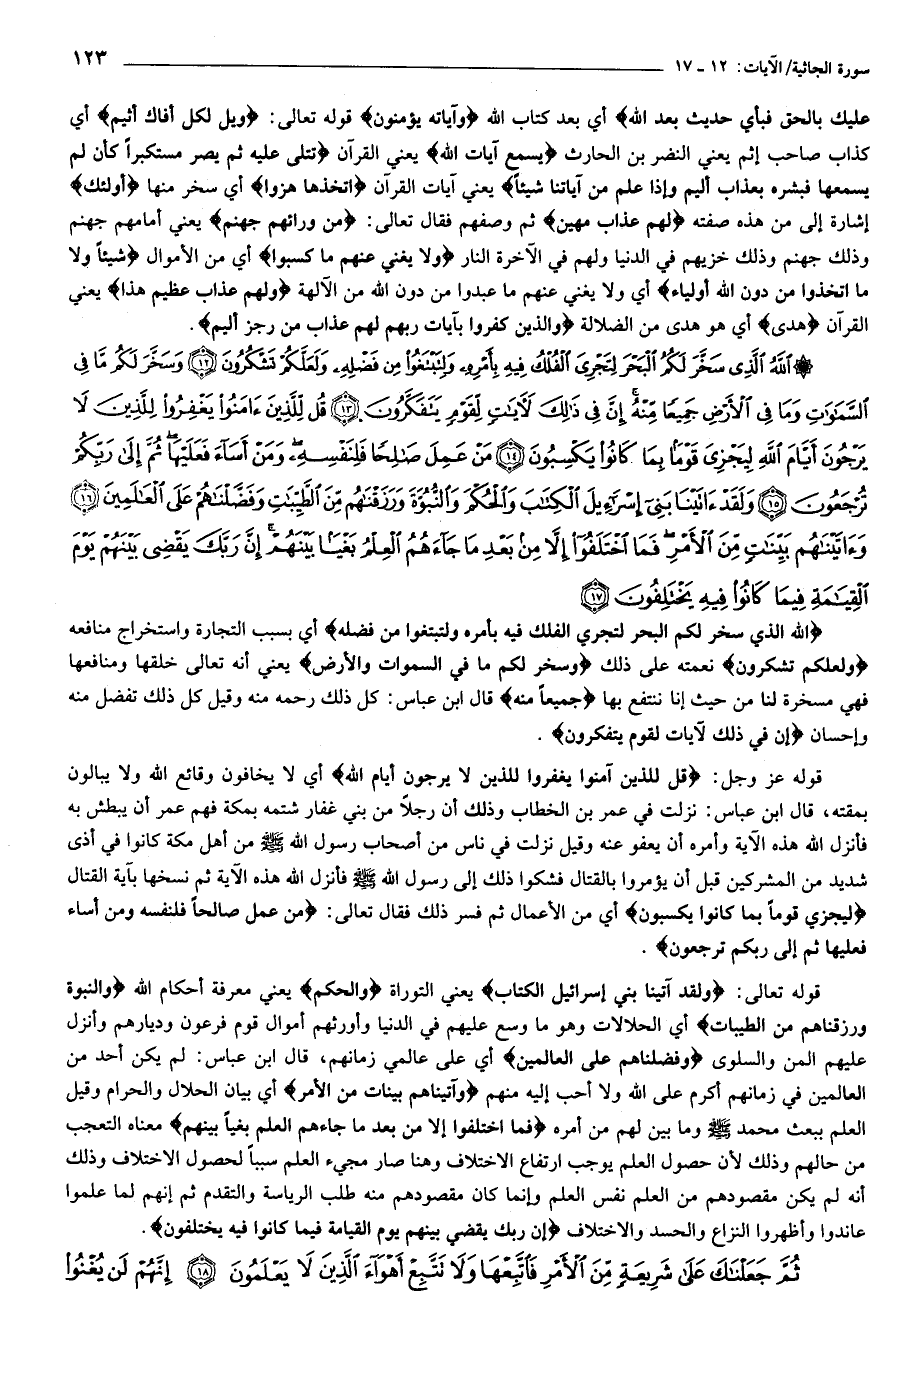 سورة الجاثية/ الآيات: ١٢ - ١٧ ١٢٣
عليك بالحق فبأي حديث بعد الله﴾ أي بعد كتاب الله ﴿وآياته يؤمنون﴾ قوله تعالى: ﴿ويل لكل أفاك أثيم﴾ أي
كذاب صاحب إثم يعني النضر بن الحارث ﴿يسمع آيات الله﴾ يعني القرآن ﴿تتلى عليه ثم يصر مستكبراً كأن لم
يسمعها فبشره بعذاب أليم وإذا علم من آياتنا شيئاً﴾ يعني آيات القرآن ﴿اتخذها هزوا﴾ أي سخر منها ﴿أولئك﴾
إشارة إلى من هذه صفته ﴿لهم عذاب مهين﴾ ثم وصفهم فقال تعالى: ﴿من ورائهم جهنم﴾ يعني أمامهم جهنم
وذلك جهنم وذلك خزيهم في الدنيا ولهم في الآخرة النار ﴿ولا يغني عنهم ما كسبوا﴾ أي من الأموال ﴿شيئاً ولا
ما اتخذوا من دون الله أولياء﴾ أي ولا يغني عنهم ما عبدوا من دون الله من الآلهة ﴿ولهم عذاب عظيم هذا﴾ يعني
القرآن ﴿هدى﴾ أي هو هدى من الضلالة ﴿والذين كفروا بآيات ربهم لهم عذاب من رجز أليم﴾.
۞ ٱللَّهُ ٱلَّذِى سَخَّرَ لَكُمُ ٱلْبَحْرَ لِتَجْرِىَ ٱلْفُلْكُ فِيهِ بِأَمْرِهِۦ وَلِتَبْتَغُوا۟ مِن فَضْلِهِۦ وَلَعَلَّكُمْ تَشْكُرُونَ ﴿١٢﴾ وَسَخَّرَ لَكُم مَّا فِى
ٱلسَّمَٰوَٰتِ وَمَا فِى ٱلْأَرْضِ جَمِيعًا مِّنْهُ ۚ إِنَّ فِى ذَٰلِكَ لَءَايَٰتٍ لِّقَوْمٍ يَتَفَكَّرُونَ ﴿١٣﴾ قُل لِّلَّذِينَ ءَامَنُوا۟ يَغْفِرُوا۟ لِلَّذِينَ لَا
يَرْجُونَ أَيَّامَ ٱللَّهِ لِيَجْزِىَ قَوْمًۢا بِمَا كَانُوا۟ يَكْسِبُونَ ﴿١٤﴾ مَنْ عَمِلَ صَٰلِحًا فَلِنَفْسِهِۦ ۖ وَمَنْ أَسَآءَ فَعَلَيْهَا ۖ ثُمَّ إِلَىٰ رَبِّكُمْ
تُرْجَعُونَ ﴿١٥﴾ وَلَقَدْ ءَاتَيْنَا بَنِىٓ إِسْرَٰٓءِيلَ ٱلْكِتَٰبَ وَٱلْحُكْمَ وَٱلنُّبُوَّةَ وَرَزَقْنَٰهُم مِّنَ ٱلطَّيِّبَٰتِ وَفَضَّلْنَٰهُمْ عَلَى ٱلْعَٰلَمِينَ ﴿١٦﴾
وَءَاتَيْنَٰهُم بَيِّنَٰتٍ مِّنَ ٱلْأَمْرِ ۖ فَمَا ٱخْتَلَفُوٓا۟ إِلَّا مِنۢ بَعْدِ مَا جَآءَهُمُ ٱلْعِلْمُ بَغْيًۢا بَيْنَهُمْ ۚ إِنَّ رَبَّكَ يَقْضِى بَيْنَهُمْ يَوْمَ
ٱلْقِيَٰمَةِ فِيمَا كَانُوا۟ فِيهِ يَخْتَلِفُونَ ﴿١٧﴾
﴿الله الذي سخر لكم البحر لتجري الفلك فيه بأمره ولتبتغوا من فضله﴾ أي بسبب التجارة واستخراج منافعه
﴿ولعلكم تشكرون﴾ نعمته على ذلك ﴿وسخر لكم ما في السموات والأرض﴾ يعني أنه تعالى خلقها ومنافعها
فهي مسخرة لنا من حيث إنا ننتفع بها ﴿جميعاً منه﴾ قال ابن عباس: كل ذلك رحمه منه وقيل كل ذلك تفضل منه
وإحسان ﴿إن في ذلك لآيات لقوم يتفكرون﴾.
قوله عز وجل: ﴿قل للذين آمنوا يغفروا للذين لا يرجون أيام الله﴾ أي لا يخافون وقائع الله ولا يبالون
بمقته، قال ابن عباس: نزلت في عمر بن الخطاب وذلك أن رجلاً من بني غفار شتمه بمكة فهم عمر أن يبطش به
فأنزل الله هذه الآية وأمره أن يعفو عنه وقيل نزلت في ناس من أصحاب رسول الله ﷺ من أهل مكة كانوا في أذى
شديد من المشركين قبل أن يؤمروا بالقتال فشكوا ذلك إلى رسول الله ﷺ فأنزل الله هذه الآية ثم نسخها بآية القتال
﴿ليجزي قوماً بما كانوا يكسبون﴾ أي من الأعمال ثم فسر ذلك فقال تعالى: ﴿من عمل صالحاً فلنفسه ومن أساء
فعليها ثم إلى ربكم ترجعون﴾.
قوله تعالى: ﴿ولقد آتينا بني إسرائيل الكتاب﴾ يعني التوراة ﴿والحكم﴾ يعني معرفة أحكام الله ﴿والنبوة
ورزقناهم من الطيبات﴾ أي الحلالات وهو ما وسع عليهم في الدنيا وأورثهم أموال قوم فرعون وديارهم وأنزل
عليهم المن والسلوى ﴿وفضلناهم على العالمين﴾ أي على عالمي زمانهم، قال ابن عباس: لم يكن أحد من
العالمين في زمانهم أكرم على الله ولا أحب إليه منهم ﴿وآتيناهم بينات من الأمر﴾ أي بيان الحلال والحرام وقيل
العلم ببعث محمد ﷺ وما بين لهم من أمره ﴿فما اختلفوا إلا من بعد ما جاءهم العلم بغياً بينهم﴾ معناه التعجب
من حالهم وذلك لأن حصول العلم يوجب ارتفاع الاختلاف وهنا صار مجيء العلم سبباً لحصول الاختلاف وذلك
أنه لم يكن مقصودهم من العلم نفس العلم وإنما كان مقصودهم منه طلب الرياسة والتقدم ثم إنهم لما علموا
عاندوا وأظهروا النزاع والحسد والاختلاف ﴿إن ربك يقضي بينهم يوم القيامة فيما كانوا فيه يختلفون﴾.
ثُمَّ جَعَلْنَٰكَ عَلَىٰ شَرِيعَةٍ مِّنَ ٱلْأَمْرِ فَٱتَّبِعْهَا وَلَا تَتَّبِعْ أَهْوَآءَ ٱلَّذِينَ لَا يَعْلَمُونَ ﴿١٨﴾ إِنَّهُمْ لَن يُغْنُوا۟